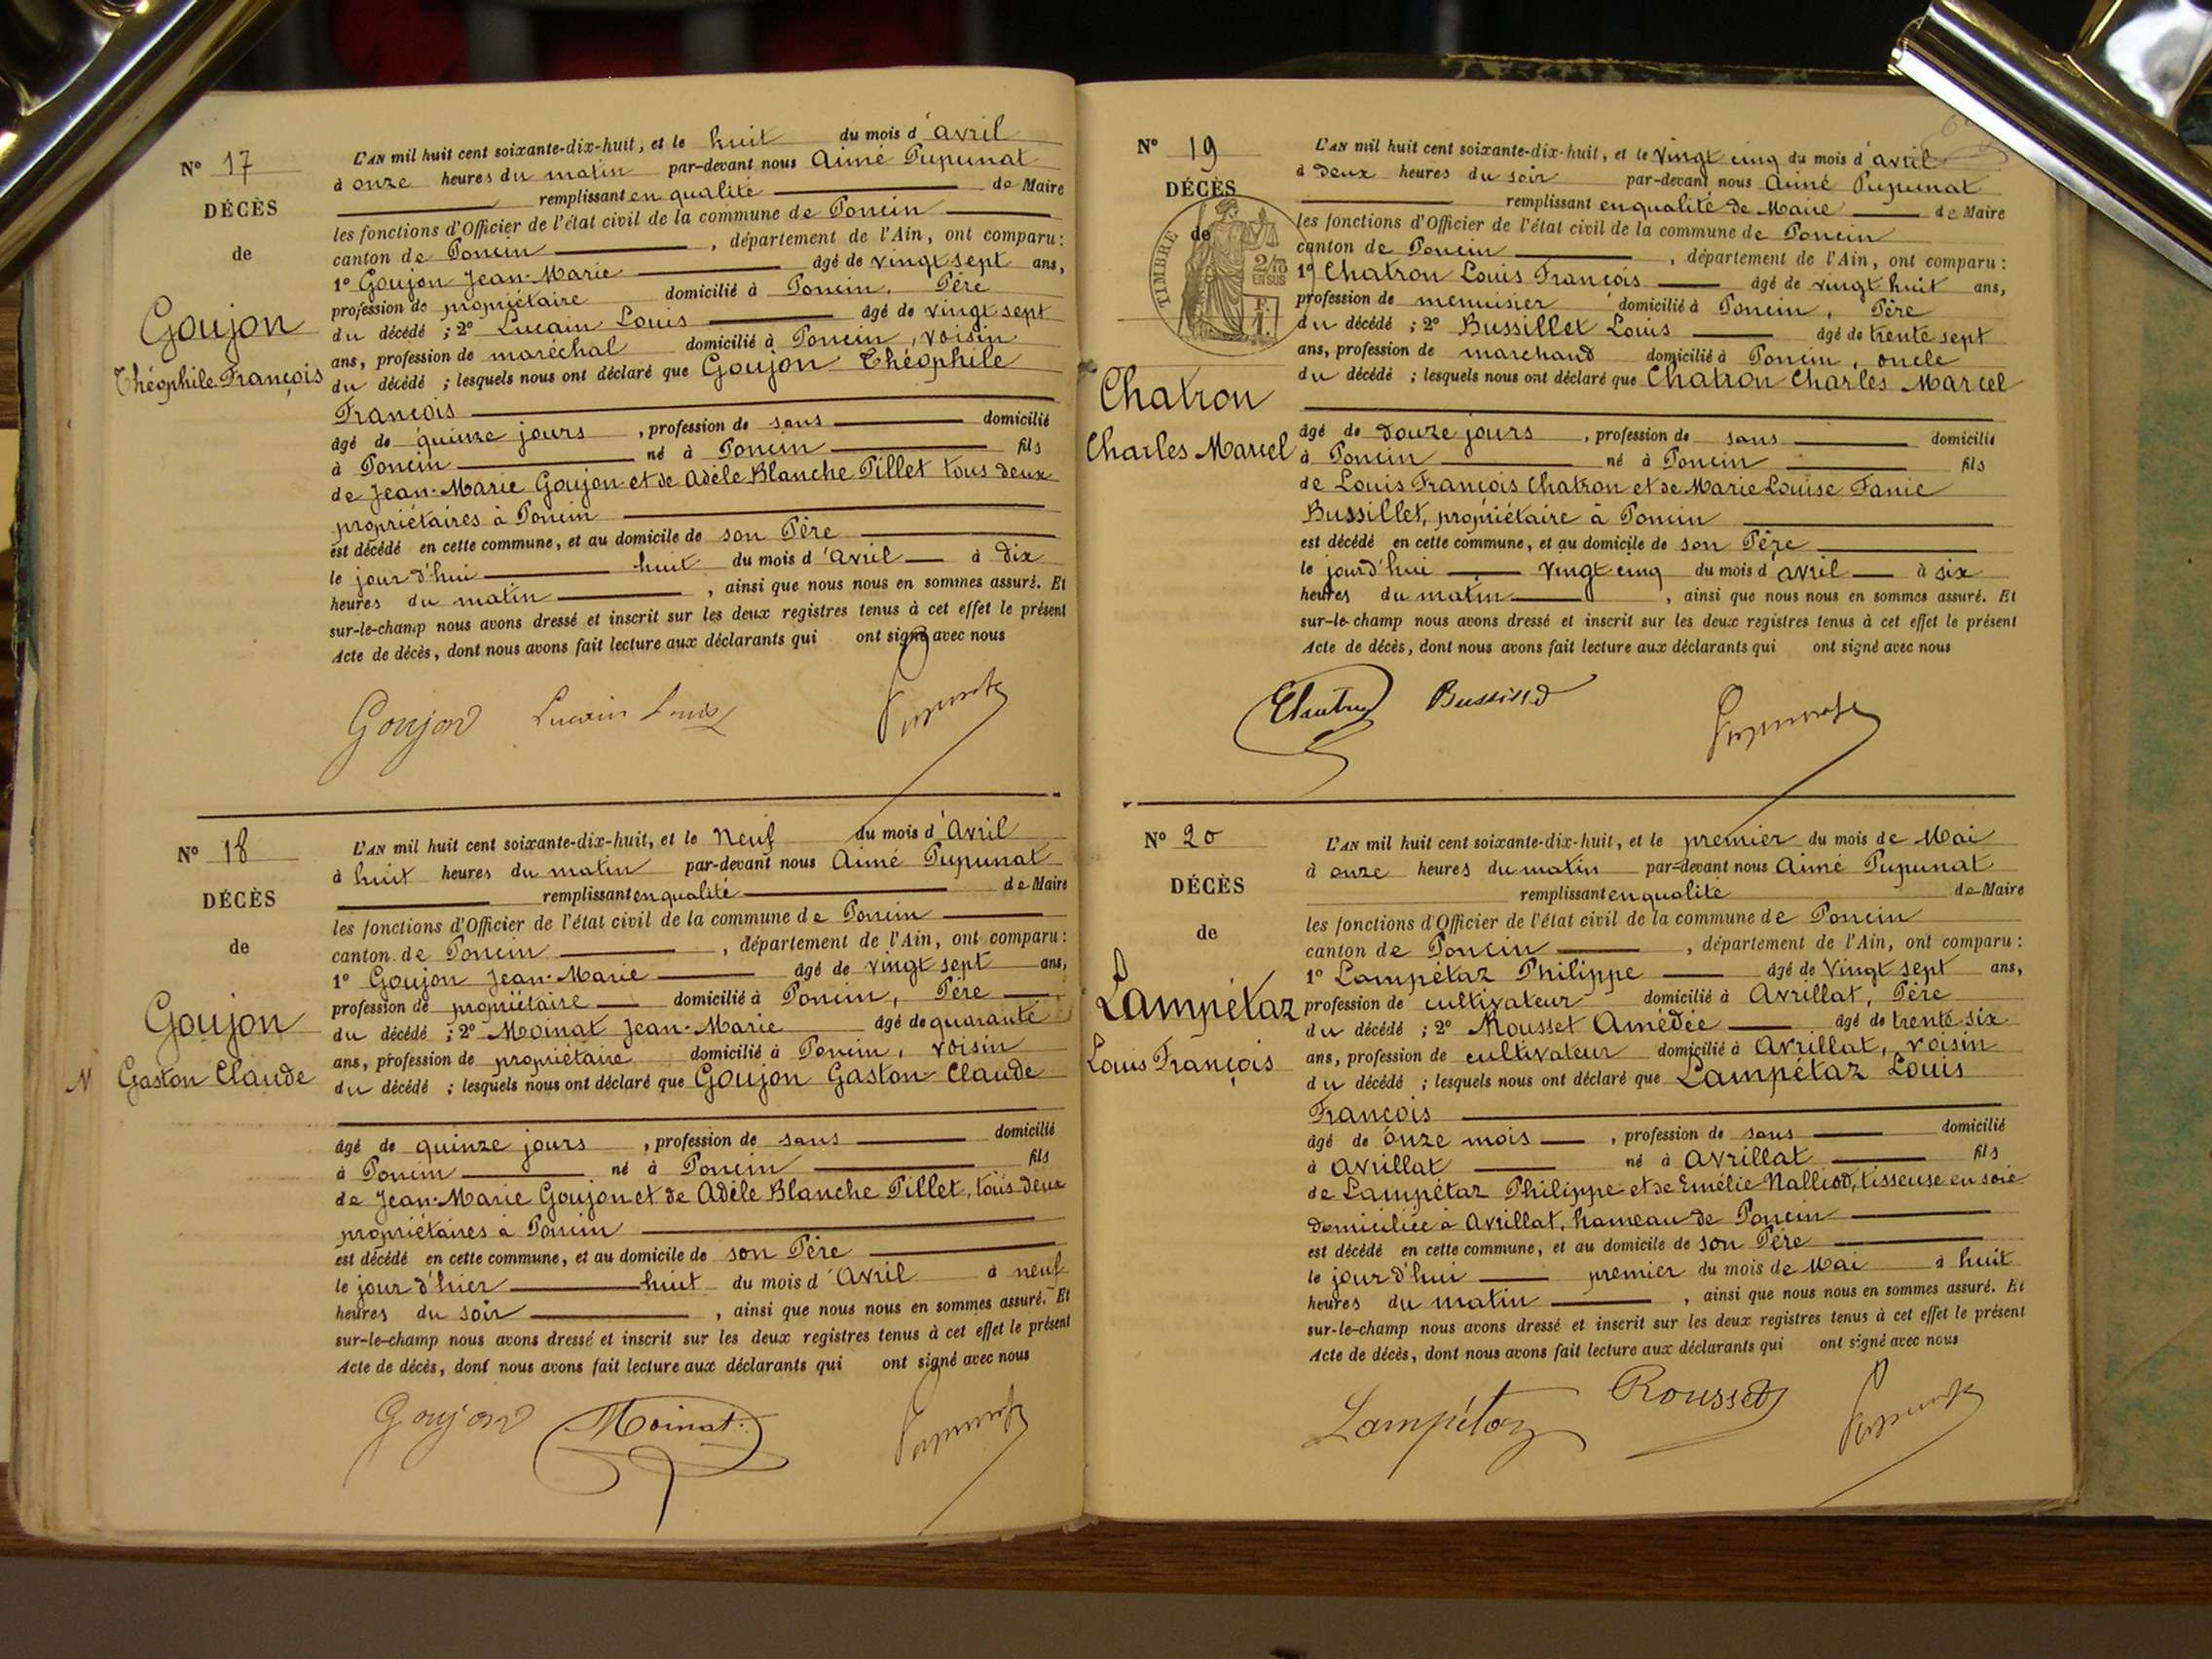 N° 17
DÉCÈS
de
Goujon
Théophile François
L'AN mil huit cent soixante-dix-huit, et le huit du mois d'avril
à onze heures du matin par-devant nous Aimé Pupunat
remplissant en qualité de Maire
les fonctions d'Officier de l'état civil de la commune de Poncin
canton de Poncin, département de l'Ain, ont comparu:
1° Goujon Jean-Marie âgé de vingt sept ans,
profession de propriétaire domicilié à Poncin, Père
du décédé; 2° Lucain Louis âgé de vingt sept
ans, profession de maréchal domicilié à Poncin, voisin
du décédé; lesquels nous ont déclaré que Goujon Théophile
François
âgé de quinze jours, profession de sans domicilié
à Poncin né à Poncin fils
de Jean-Marie Goujon et de Adèle Blanche Pillet tous deux
propriétaires à Poncin
est décédé en cette commune, et au domicile de son Père
le jour d'hui huit du mois d'avril à dix
heures du matin, ainsi que nous nous en sommes assuré. Et
sur-le-champ nous avons dressé et inscrit sur les deux registres tenus à cet effet le présent
Acte de décès, dont nous avons fait lecture aux déclarants qui ont signé avec nous
Goujon Lucain Louis Pupunat
N° 18
DÉCÈS
de
Goujon
N Gaston Claude
L'AN mil huit cent soixante-dix-huit, et le Neuf du mois d'Avril
à huit heures du matin par-devant nous Aimé Pupunat
remplissant en qualité de Maire
les fonctions d'Officier de l'état civil de la commune de Poncin
canton de Poncin, département de l'Ain, ont comparu:
1° Goujon Jean-Marie âgé de vingt sept ans,
profession de propriétaire domicilié à Poncin, Père
du décédé; 2° Moinat Jean-Marie âgé de quarante
ans, profession de propriétaire domicilié à Poncin, voisin
du décédé; lesquels nous ont déclaré que Goujon Gaston Claude
âgé de quinze jours, profession de sans domicilié
à Poncin né à Poncin fils
de Jean-Marie Goujon et de Adèle Blanche Pillet, tous deux
propriétaires à Poncin
est décédé en cette commune, et au domicile de son Père
le jour d'hier huit du mois d'Avril à neuf
heures du soir, ainsi que nous nous en sommes assuré. Et
sur-le-champ nous avons dressé et inscrit sur les deux registres tenus à cet effet le présent
Acte de décès, dont nous avons fait lecture aux déclarants qui ont signé avec nous
Goujon Moinat Pupunat
N° 19
DÉCÈS
de
TIMBRE
2/10
EN SUS
F.
1.
Chatron
Charles Marcel
L'AN mil huit cent soixante-dix-huit, et le vingt cinq du mois d'avril
à deux heures du soir par-devant nous Aimé Pupunat
remplissant en qualité de Maire de Maire
les fonctions d'Officier de l'état civil de la commune de Poncin
canton de Poncin, département de l'Ain, ont comparu:
1° Chatron Louis François âgé de vingt huit ans,
profession de menuisier domicilié à Poncin, Père
du décédé; 2° Bussillet Louis âgé de trente sept
ans, profession de marchand domicilié à Poncin, oncle
du décédé; lesquels nous ont déclaré que Chatron Charles Marcel
âgé de douze jours, profession de sans domicilié
à Poncin né à Poncin fils
de Louis François Chatron et de Marie Louise Fanie
Bussillet, propriétaire à Poncin
est décédé en cette commune, et au domicile de son Père
le jourd'hui vingt cinq du mois d'avril à six
heures du matin, ainsi que nous nous en sommes assuré. Et
sur-le-champ nous avons dressé et inscrit sur les deux registres tenus à cet effet le présent
Acte de décès, dont nous avons fait lecture aux déclarants qui ont signé avec nous
Chatron Bussillet Pupunat
N° 20
DÉCÈS
de
Lampétaz
Louis François
L'AN mil huit cent soixante-dix-huit, et le premier du mois de Mai
à onze heures du matin par-devant nous Aimé Pupunat
remplissant en qualité de Maire
les fonctions d'Officier de l'état civil de la commune de Poncin
canton de Poncin, département de l'Ain, ont comparu:
1° Lampétaz Philippe âgé de Vingt sept ans,
profession de cultivateur domicilié à Avrillat, Père
du décédé; 2° Rousset Amédée âgé de trente six
ans, profession de cultivateur domicilié à Avrillat, voisin
du décédé; lesquels nous ont déclaré que Lampétaz Louis
François
âgé de onze mois, profession de sans domicilié
à Avrillat né à Avrillat fils
de Lampétaz Philippe et de Emélie Nalliod, tisseuse en soie
domiciliée à Avrillat, hameau de Poncin
est décédé en cette commune, et au domicile de son Père
le jour d'hui premier du mois de Mai à huit
heures du matin, ainsi que nous nous en sommes assuré. Et
sur-le-champ nous avons dressé et inscrit sur les deux registres tenus à cet effet le présent
Acte de décès, dont nous avons fait lecture aux déclarants qui ont signé avec nous
Lampétaz Rousset Pupunat